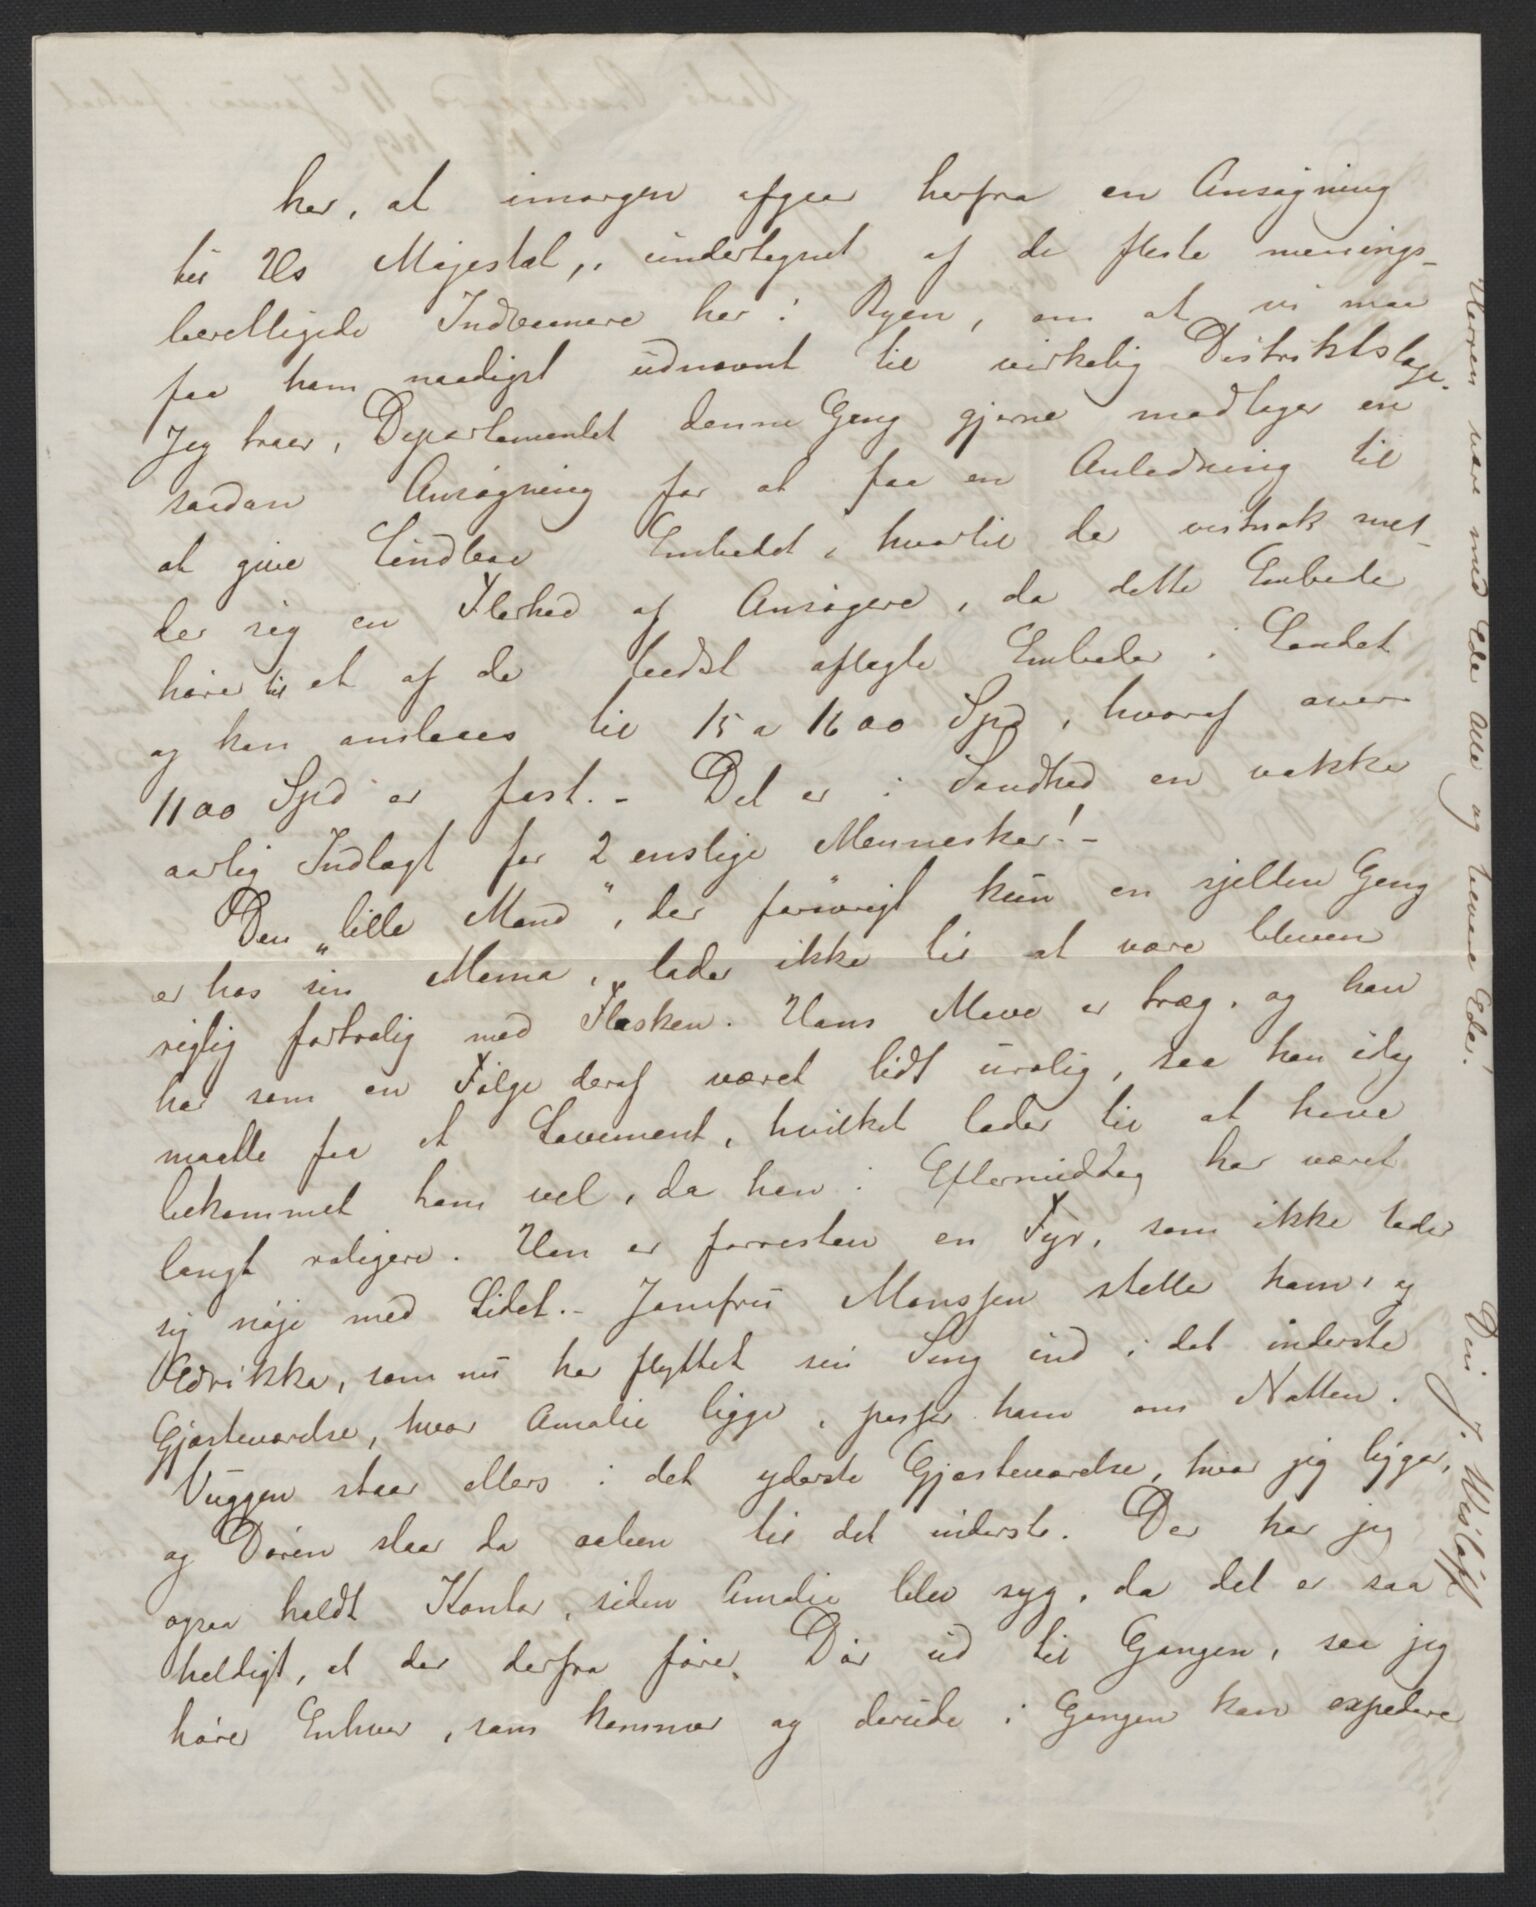 her, at imorgen afgaar herfra en Ansøgning
til Hs Majestæt, undertegnet af de fleste menings-
berettigede Indvaanere her i Byen, om at vi maa
faa ham naadigst udnævnt til virkelig Distriktslæge.
Jeg troer, Departementet denne Gang gjerne modtager en
saadan Ansøgning for at faa en Anledning til
at give Lindboe Embedet, hvortil der vistnok mel-
der sig en Flerhed af Ansøgere, da dette Embede
hører til et af de bedst aflagte Embeder i Landet
og kan anslaaes til 15 a 1600 Spd, hvoraf over
1100 Spd er fast. - Det er i Sandhed en vakker
aarlig Indtægt for 2 enslige Mennesker! -
Den "lille Mand", der forøvrigt kun en sjelden Gang
er hos sin Mama, lader ikke til at være bleven
rigtig fortrolig med Flasken. Hans Mave er træg, og han
har som en Følge deraf været lidt urolig, saa han idag
maatte faa et Lavement, hvilket lader til at have
bekommet ham vel, da han i Eftermiddag har været
langt roligere. Han er forresten en Fyr, som ikke lader
sig nøje med Lidet. - Jomfru Monssen steller ham, og
Edrikka, som nu har flyttet sin Seng ind i det inderste
Gjæsteværelse, hvor Amalie ligger, passer ham om Natten.
Vuggen staar ellers i det yderste Gjæsteværelse, hvor jeg ligger,
og Døren staar da aaben til det inderste. Der har jeg
ogsaa holdt Kontor, siden Amalie blev syg, da det er saa
heldigt, at der derfra fører Dør ud til Gangen, saa jeg
hører Enhver, som kommer og derude i Gangen kan expedere
Herren være med Eder Alle og bevare Eder!
Din J. Wisløff